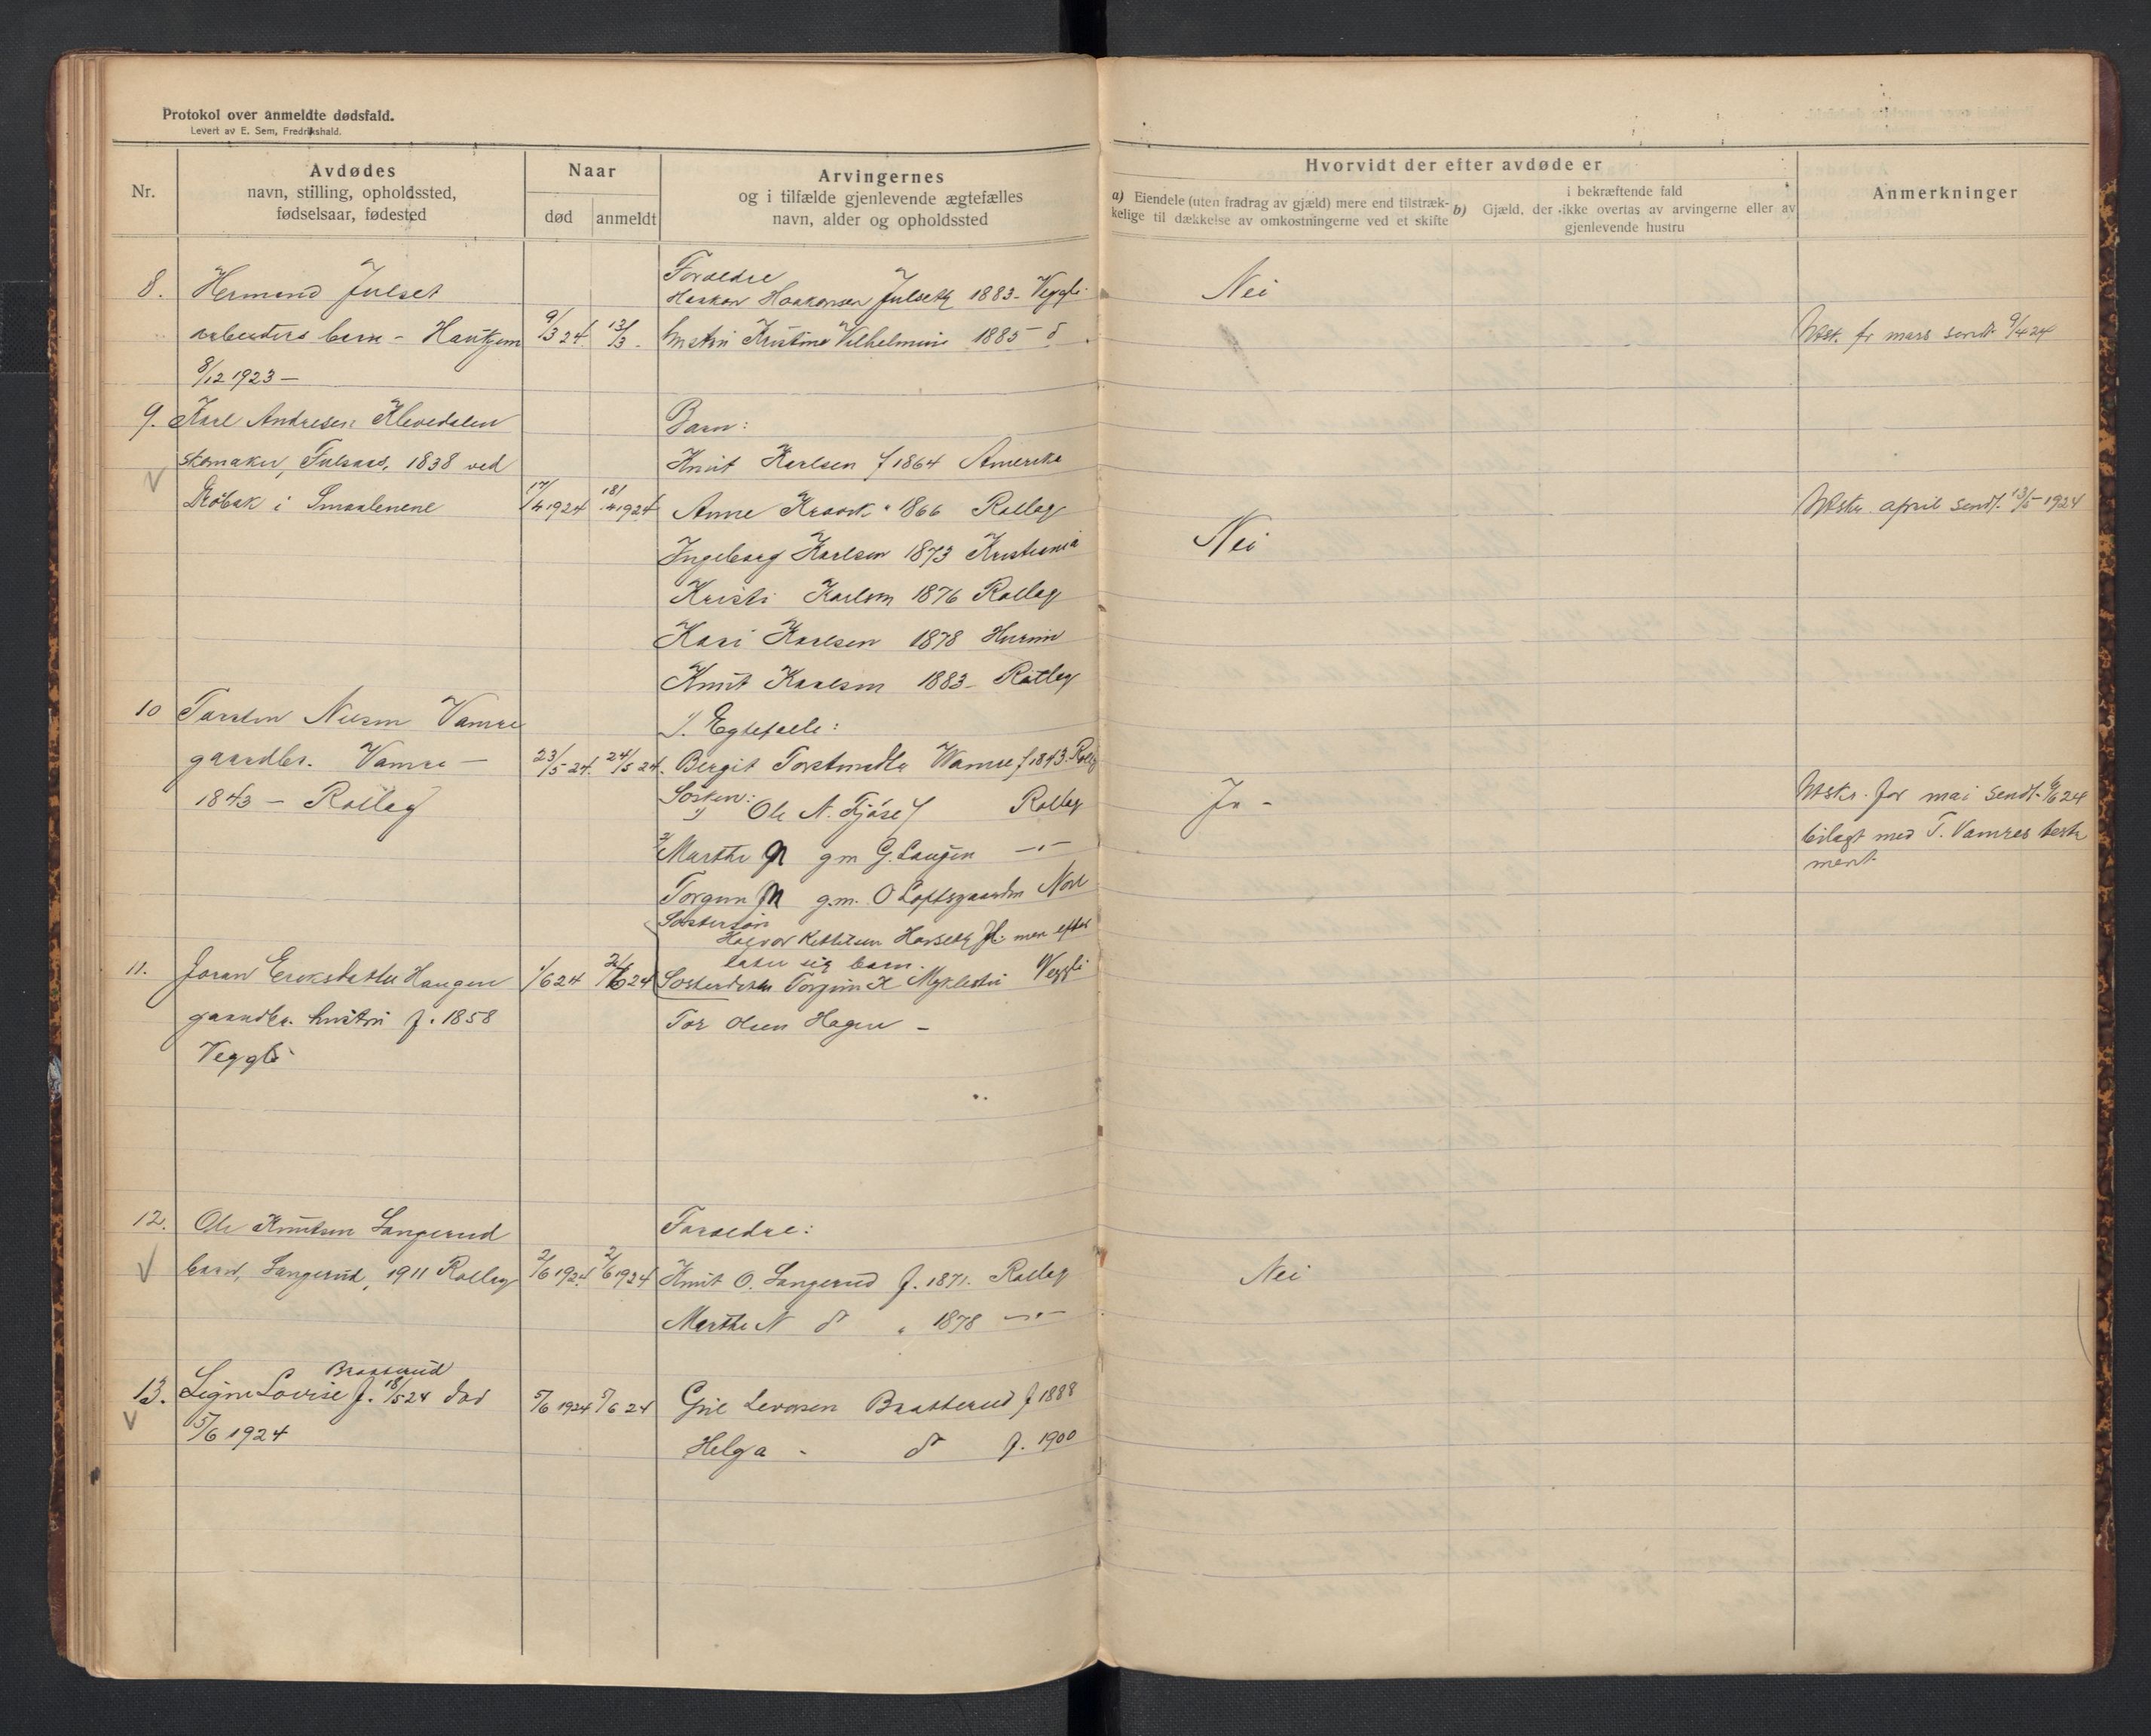 Protokol over anmeldte dødsfald.
Levert av E. Sem, Fredrikshald.
Nr.
Avdødes
navn, stilling, opholdssted,
fødselsaar, fødested
Naar
død
anmeldt
Arvingernes
og i tilfælde gjenlevende ægtefælles
navn, alder og opholdssted
Hvorvidt der efter avdøde er
a) Eiendele (uten fradrag av gjæld) mere end tilstræk-
kelige til dækkelse av omkostningerne ved et skifte
i bekræftende fald
b) Gjæld, der ikke overtas av arvingerne eller av
gjenlevende hustru
Anmerkninger
8. Hermand Julset
arbeiders barn - 
8/12 1923 -
9/3 24. 13/3.
Foraeldre
Haakon Haakonsen Julseth 1883 - Veggli
hustru Kristine Vilhelmine 1885 - d
Nei
Utskr. fr mars sendt 9/4 24
9. Karl Andresen Klevedalen
skomaker, 1838 ved
Drøbak i Smaalenene
17/4 1924 18/4 1924
Barn:
Knut Karlsen f 1864 Amerika
Anne 1866 Rollag
Ingeborg Karlsen 1873 Kristiania
Kristi Karlsen 1876 Rollag
Kari Karlsen 1878 Hurum
Knut Karlsen 1883 - Rollag
Nei
Utskr. april sendt. 13/5 - 1924
10 Torsten Nilsen Vamre
gaardbr. Vamre -
1843 - Rollag
23/5 24. 24/5 24.
1. Egtefælle:
Bergit Torstensdtr Wamre f 1843. Rollg
Søsken:
1) Ole N. Fjøse f Rollag
2) Marthe N gm G. Laugen - " -
Torgun N g.m. O Loftsgaarden Nore
Søstersøn
Halvor Kittilsen Harseth men efter
later sig barn.
Søsterdatter Torgun K Myklestu Veggli
Ja -
Utskr. for mai sendt. 6/6 24
bilagt med T. Vamres testa
ment
11. Joran Eriksdatter Haugen
gaardbr. hustru f. 1858
Veggli
1/6 24 2/6 24
Tor Olsen Hagen -
12. Ole Knutsen Langerud
barn, Langerud, 1911 Rollag
2/6 1924 2/6 1924
Foraeldre:
Knut O. Langerud f. 1871. Rollag
Marthe N do " 1878 - " -
Nei
13. Signe Lovise Braaterud f. 18/5 24 død
5/6 1924
5/6 1924 5/6 24
Braatterud f 1888
Helga - do f. 1900